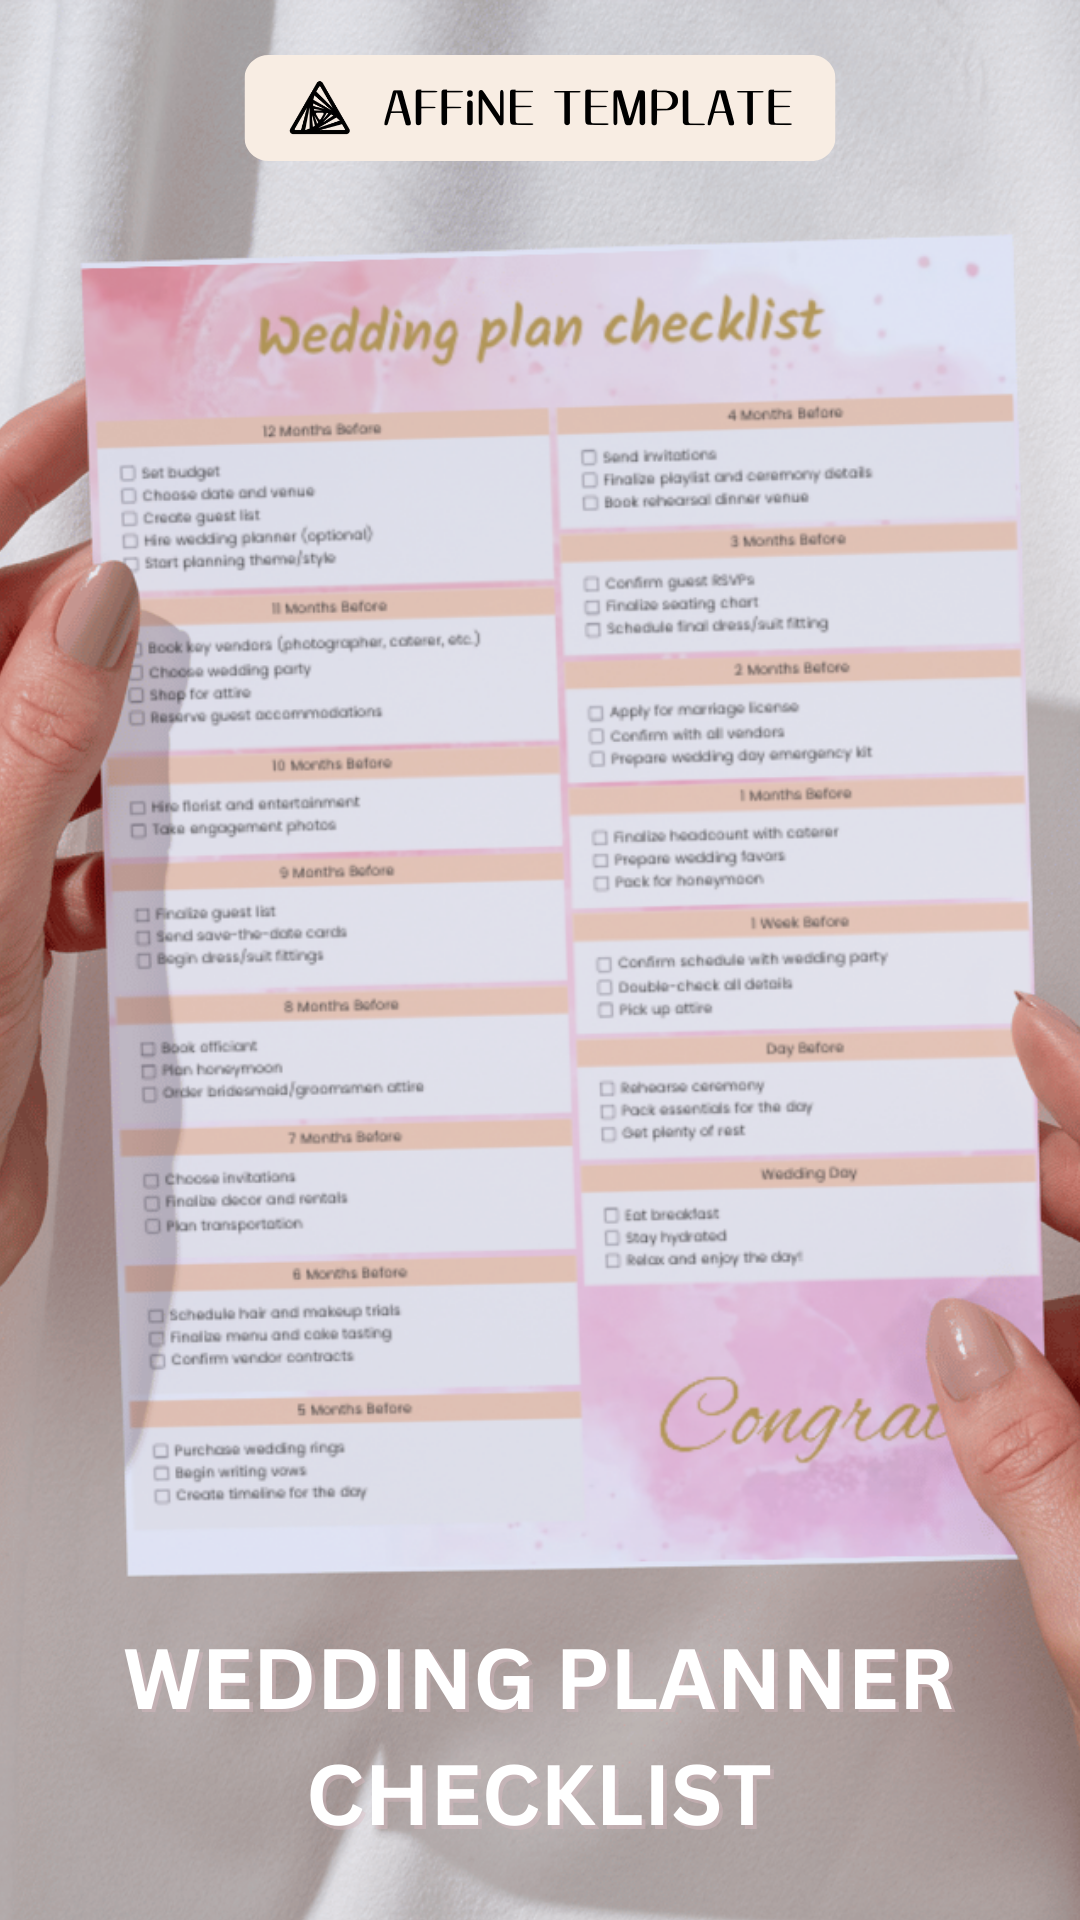 AFFiNE TEMPLATE
Wedding plan checklist
12 Months Before
Set budget
Choose date and venue
Create guest list
Hire wedding planner (optional)
Start planning theme/style
11 Months Before
Book key vendors (photographer, caterer, etc.)
Choose wedding party
Shop for attire
Reserve guest accommodations
10 Months Before
Hire florist and entertainment
Take engagement photos
9 Months Before
Finalize guest list
Send save-the-date cards
Begin dress/suit fittings
8 Months Before
Book officiant
Plan honeymoon
Order bridesmaid/groomsmen attire
7 Months Before
Choose invitations
Finalize decor and rentals
Plan transportation
6 Months Before
Schedule hair and makeup trials
Finalize menu and cake tasting
Confirm vendor contracts
5 Months Before
Purchase wedding rings
Begin writing vows
Create timeline for the day
4 Months Before
Send invitations
Finalize playlist and ceremony details
Book rehearsal dinner venue
3 Months Before
Confirm guest RSVPs
Finalize seating chart
Schedule final dress/suit fitting
2 Months Before
Apply for marriage license
Confirm with all vendors
Prepare wedding day emergency kit
1 Months Before
Finalize headcount with caterer
Prepare wedding favors
Pack for honeymoon
1 Week Before
Confirm schedule with wedding party
Double-check all details
Pick up attire
Day Before
Rehearse ceremony
Pack essentials for the day
Get plenty of rest
Wedding Day
Eat breakfast
Stay hydrated
Relax and enjoy the day!
Congrat
WEDDING PLANNER
CHECKLIST